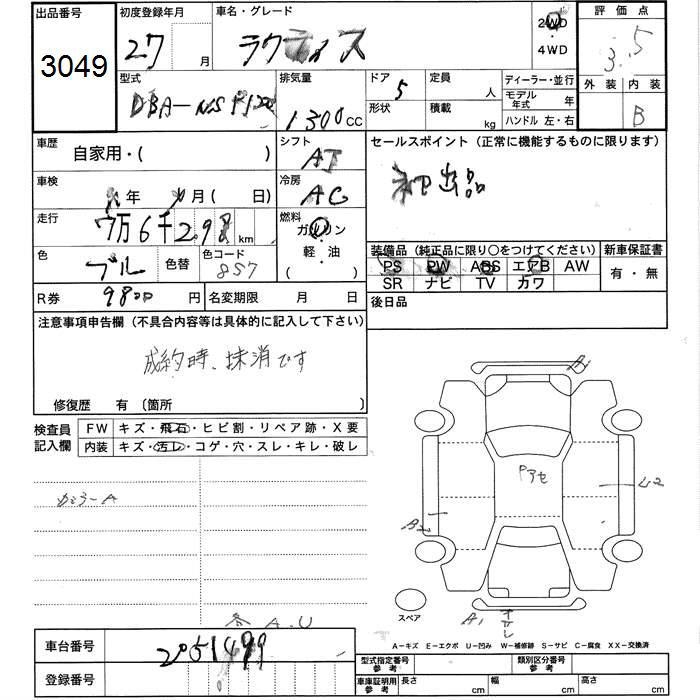 出品番号 初度登録年月 車名・グレード 2WD 評価点
3049 27 月 ラクティス 4WD 3.5
型式 排気量 ドア 5 定員 人 ディーラー・並行 外装 内装
DBA-NSP120 1300cc 形状 積載 kg モデル年式 年 B
ハンドル 左・右
車歴 自家用・( ) シフト AT セールスポイント (正常に機能するものに限ります)
車検 年 月( 日) 冷房 AC 初出品
走行 7万6千298km 燃料 ガソリン
軽・油
( )
色 ブルー 色替 色コード 857 装備品 (純正品に限り〇をつけてください) 新車保証書
PS PW ABS エアB AW 有・無
SR ナビ TV カワ
R券 9800円 名変期限 月 日 後日品
注意事項申告欄 (不具合内容等は具体的に記入して下さい)
成約時、抹消です
修復歴 有 〔箇所 〕
検査員記入欄 FW キズ・飛石・ヒビ割・リペア跡・X要
内装 キズ・汚レ・コゲ・穴・スレ・キレ・破レ
カラーA
各 A.U
A1
Pアセ
U2
A2
スペア
A1
A-キズ E-エクボ U-凹み W-補修跡 S-サビ C-腐食 XX-交換済
車台番号 2051499
型式指定番号 参考 類別区分番号 参考
登録番号 車庫証明用 参考 長さ cm 幅 cm 高さ cm